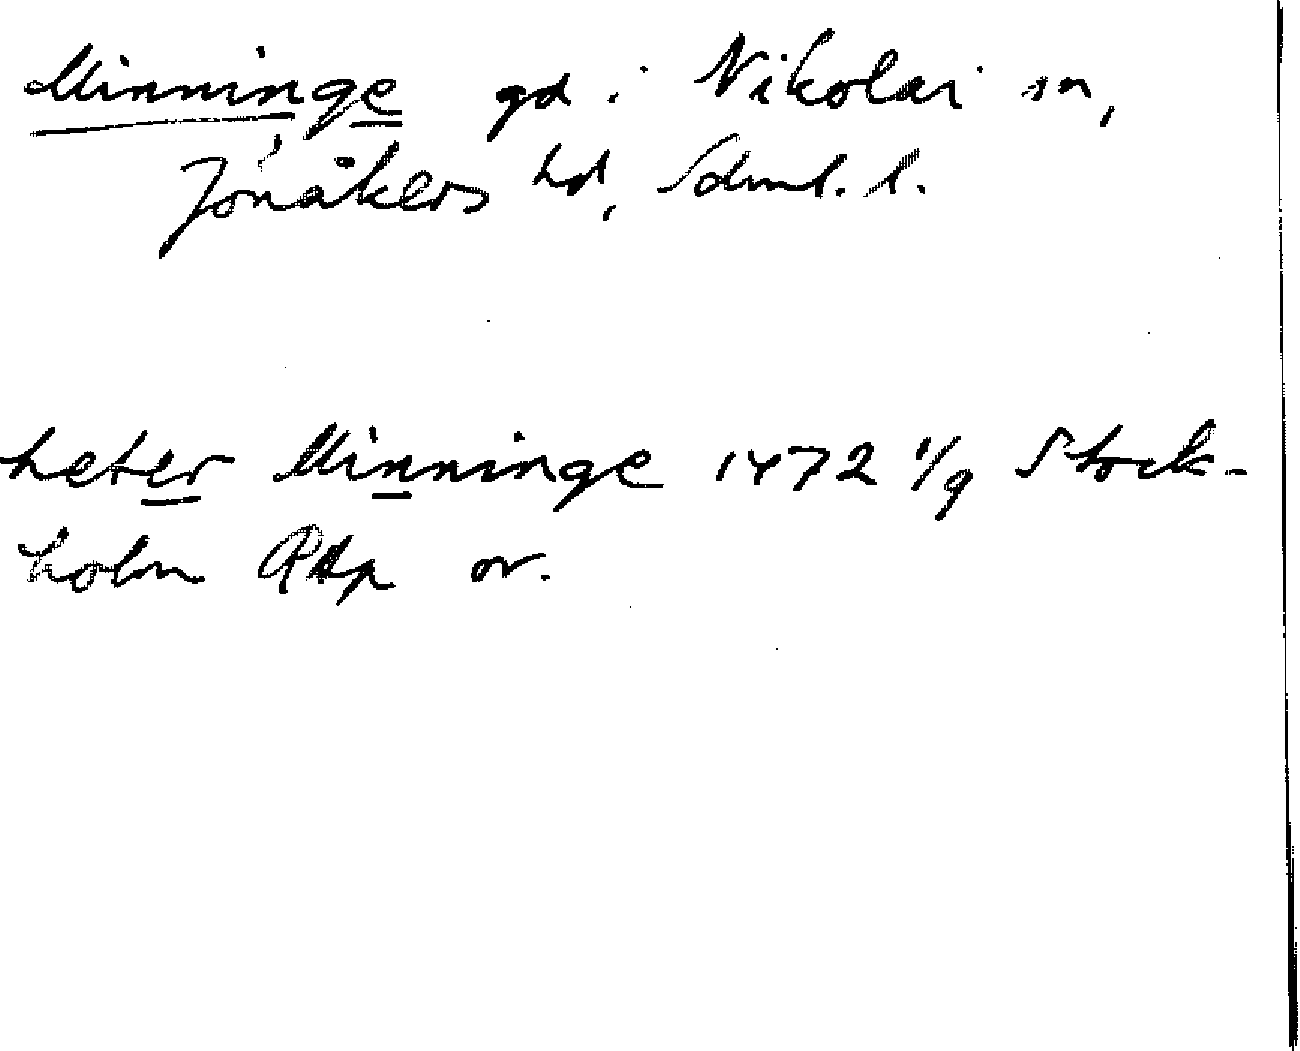 Minninge gd i Nikolai sn,
Jönåkers hd, Sdml. l.
heter Minninge 1472 1/9 Stock-
holm RAp or.